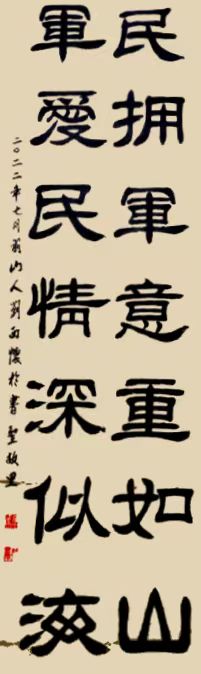 民拥軍意重如山
軍愛民情深似海
二〇二二年七月
山人劉
於書聖故里